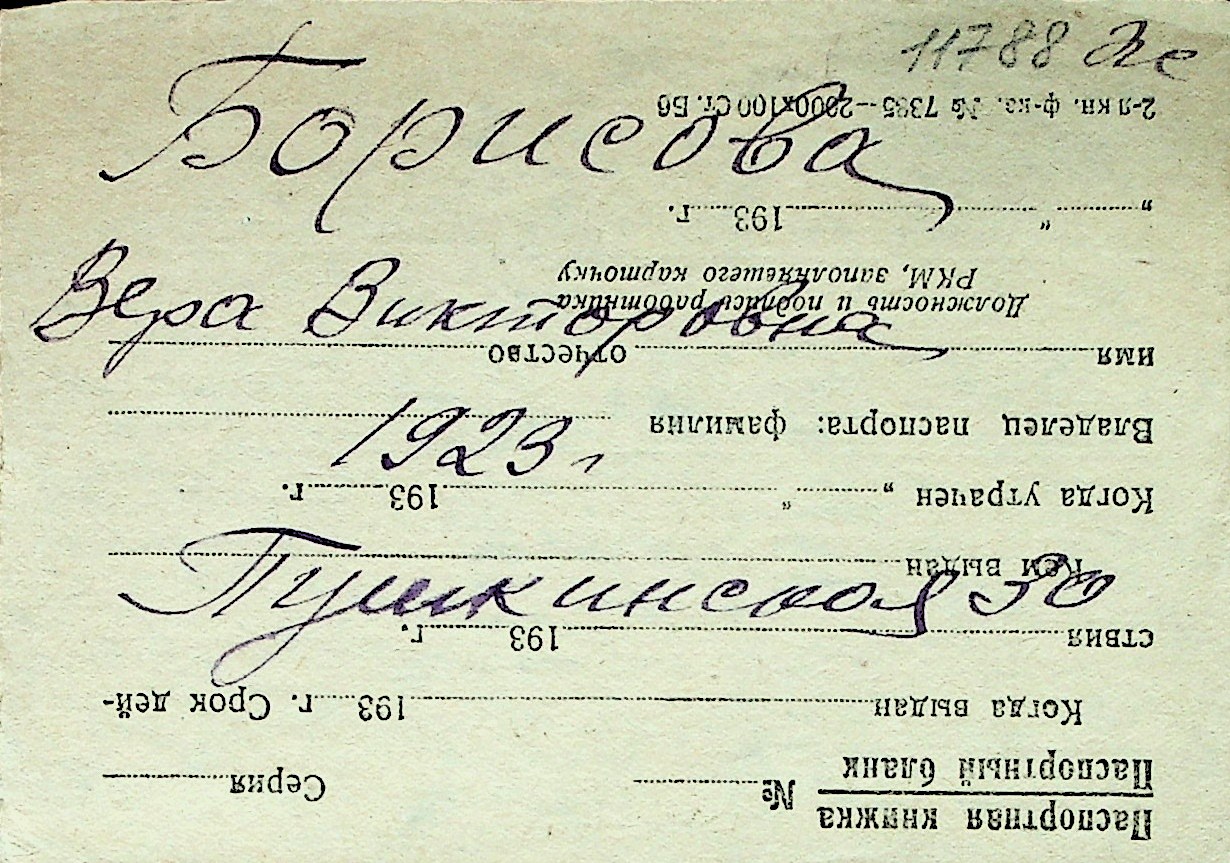 11788
Борисова
Вера Викторовна
1923 г
Пушкинская 30
Паспортная книжка
Паспортный бланк
№ Серия
Когда выдан 193 г. Срок дей-
ствия 193 г.
Кем выдан
Когда утрачен „ “ 193 г.
Владелец паспорта: фамилия
имя отчество
Должность и подпись работника
РКМ, заполняющего карточку
„ “ 193 г.
2-я кн. ф-ка. № 7395—2000х100 Ст. Бб